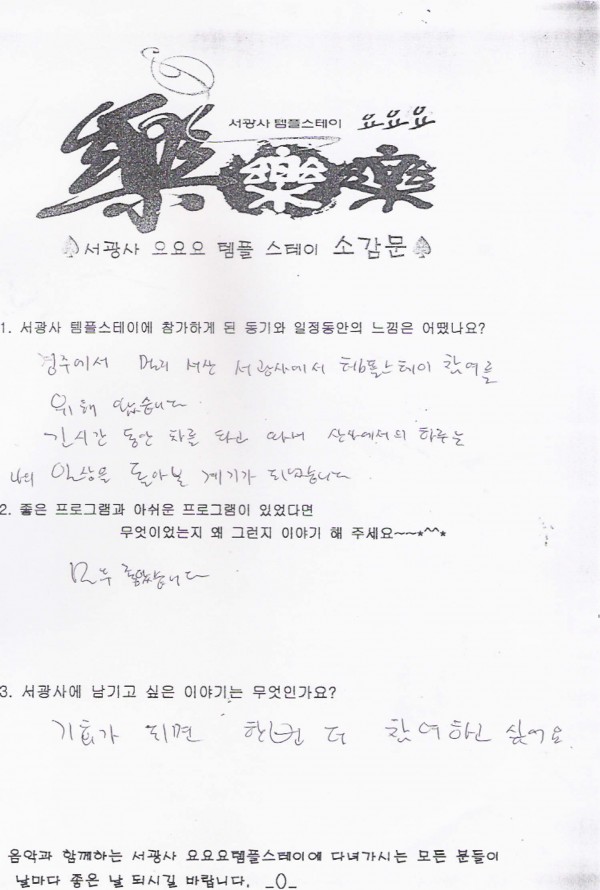 서광사 템플스테이 요요요
樂 樂 樂
서광사 요요요 템플 스테이 소감문
1. 서광사 템플스테이에 참가하게 된 동기와 일정동안의 느낌은 어땠나요?
경주에서 멀리 서산 서광사에서 템플스테이 참여를
위해 왔습니다
긴시간 동안 차를 타고 와서 산사에서의 하루는
나의 일상을 돌아볼 계기가 되었습니다
2. 좋은 프로그램과 아쉬운 프로그램이 있었다면
무엇이었는지 왜 그런지 이야기 해 주세요~~*^^*
모두 좋았습니다
3. 서광사에 남기고 싶은 이야기는 무엇인가요?
기회가 되면 한번 더 참여하고 싶어요.
음악과 함께하는 서광사 요요요템플스테이에 다녀가시는 모든 분들이
날마다 좋은 날 되시길 바랍니다. _()_